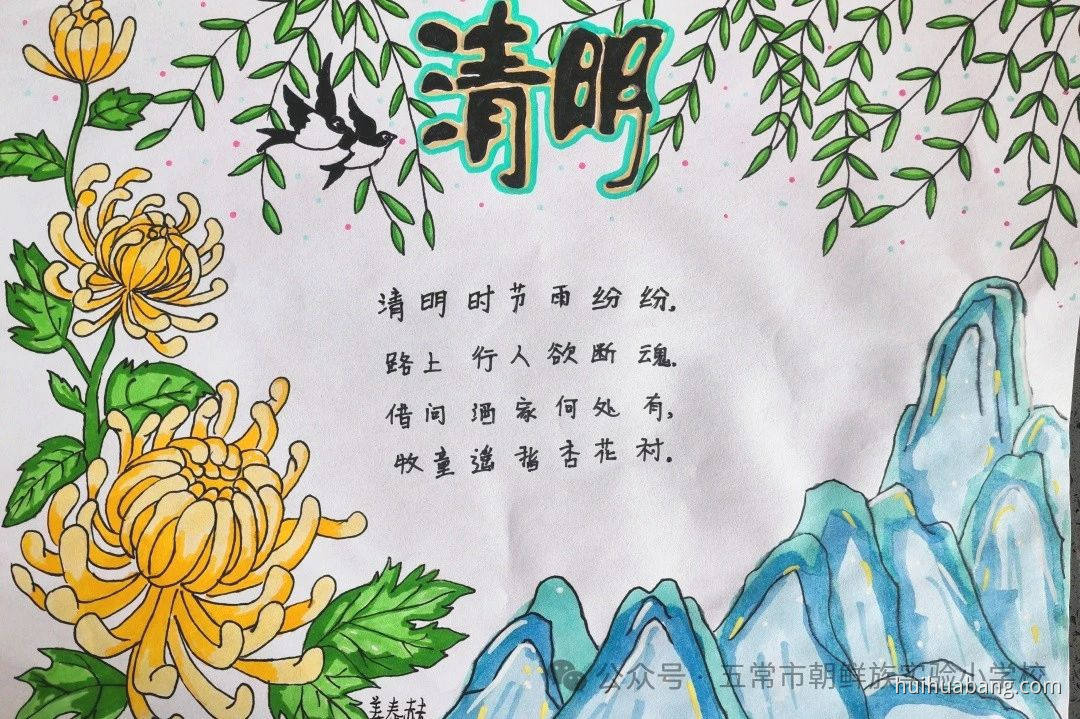 清明
清明时节雨纷纷,
路上行人欲断魂.
借问酒家何处有,
牧童遥指杏花村.
公众号·五常市朝鲜族实验小学校
huihuabang.com